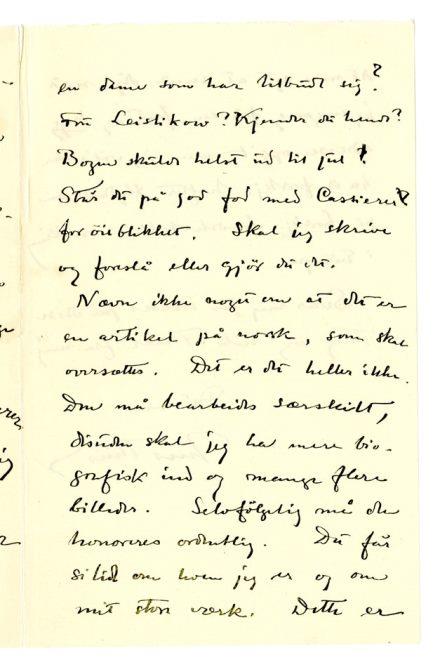 en dame som har tilbudt sig?
Frü Leistikow? Kjender du hende?
Bogen skulde helst ud til jul!
Står du på god fod med Cassierer
for öieblikket. Skal jeg skrive
og foreslå eller gjör du det.
Nævn ikke noget om at det er
en artikel på norsk, som skal
oversættes. Det er det heller ikke.
Den må bearbeides særskilt,
desuden skal jeg ha mere bio-
grafisk ind og mange flere
billeder. Selvfölgelig må den
honoreres ordentlig. Du får
si lidt om hvem jeg er og om
mit store værk. Dette er